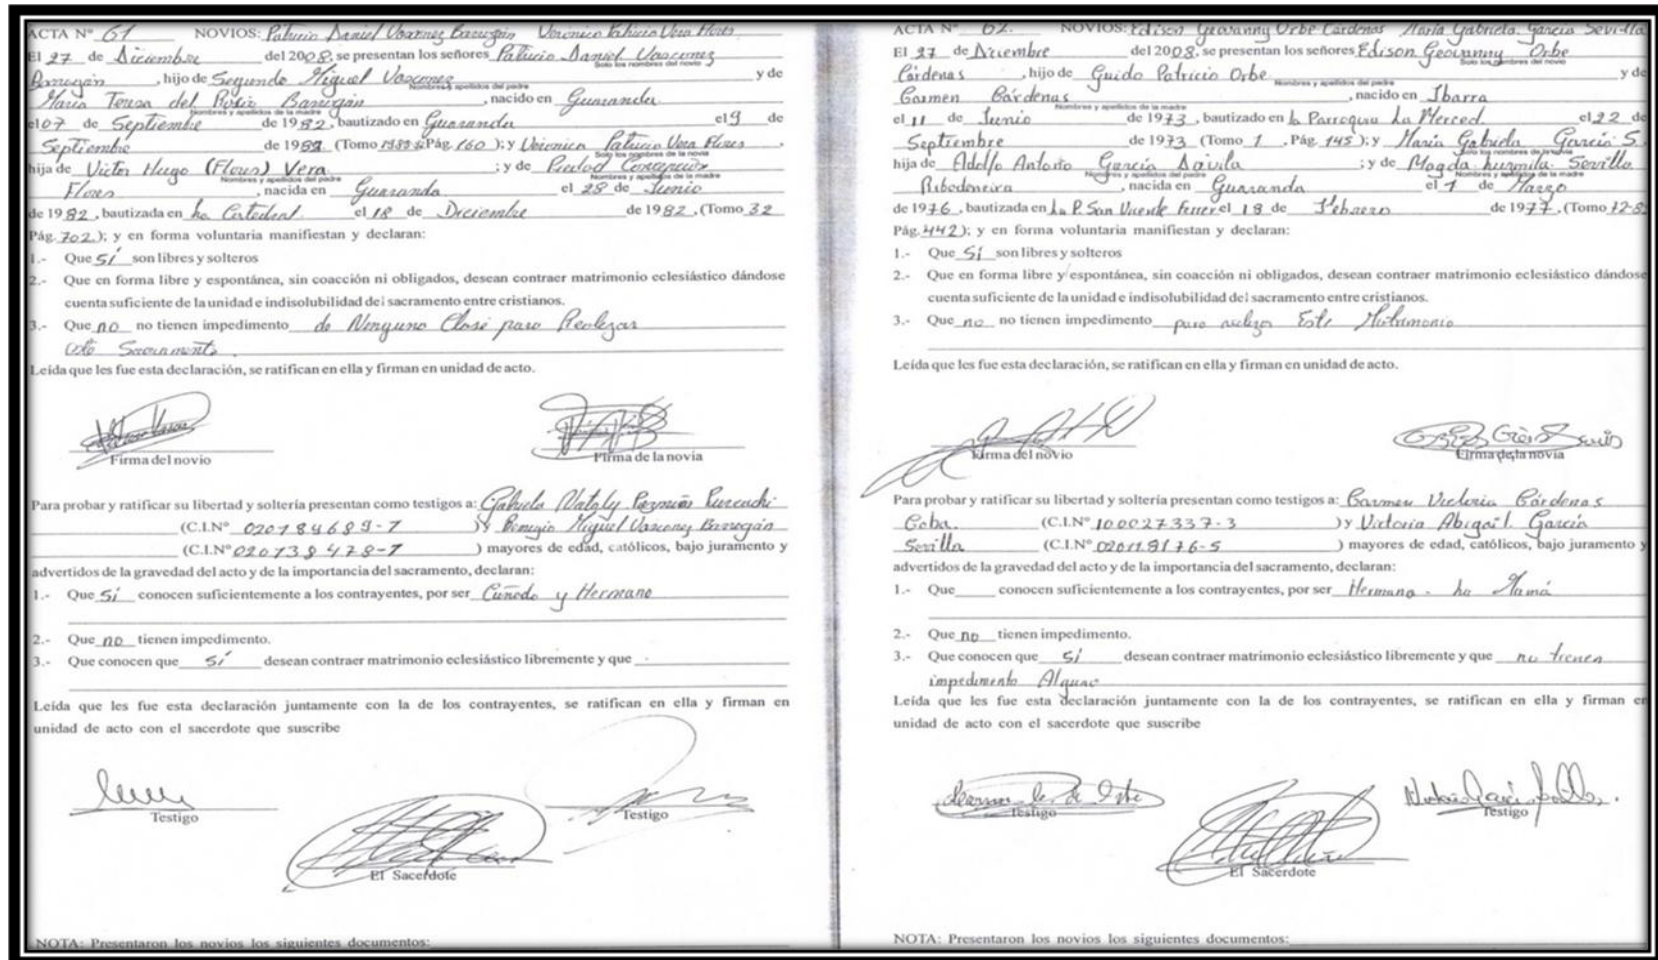 ACTA N° 61 NOVIOS: Patricio Daniel Vasconez Barragán Veronica Patricia Vera Flores
El 27 de Diciembre del 2008, se presentan los señores Patricio Daniel Vasconez
Solo los nombres del novio
Barragán, hijo de Segundo Miguel Vasconez y de
Nombres y apellidos del padre
Maria Teresa del Rosio Barragán, nacido en Guaranda
Nombres y apellidos de la madre
el 07 de Septiembre de 1982, bautizado en Guaranda el 9 de
Septiembre de 1982 (Tomo Pág. 160); y Veronica Patricia Vera Flores
Solo los nombres de la novia
hija de Victor Hugo (Flores) Vera ; y de Piedad Concepción
Nombres y apellidos del padre Nombres y apellidos de la madre
Flores, nacida en Guaranda el 28 de Junio
de 1982, bautizada en La Catedral el 18 de Diciembre de 1982, (Tomo 32
Pág. 702); y en forma voluntaria manifiestan y declaran:
1.- Que Sí son libres y solteros
2.- Que en forma libre y espontánea, sin coacción ni obligados, desean contraer matrimonio eclesiástico dándose
cuenta suficiente de la unidad e indisolubilidad del sacramento entre cristianos.
3.- Que no no tienen impedimento de Ninguno Clase para Realizar
este Sacramento.
Leída que les fue esta declaración, se ratifican en ella y firman en unidad de acto.
Firma del novio Firma de la novia
Para probar y ratificar su libertad y soltería presentan como testigos a: Gabriela Nataly
(C.I.N° 020184689-7 ) y Remigio Miguel Vasconez Barragán
(C.I.N° 020138478-7 ) mayores de edad, católicos, bajo juramento y
advertidos de la gravedad del acto y de la importancia del sacramento, declaran:
1.- Que Sí conocen suficientemente a los contrayentes, por ser Cuñado y Hermano
2.- Que no tienen impedimento.
3.- Que conocen que Sí desean contraer matrimonio eclesiástico libremente y que
Leída que les fue esta declaración juntamente con la de los contrayentes, se ratifican en ella y firman en
unidad de acto con el sacerdote que suscribe
Testigo Testigo
El Sacerdote
NOTA: Presentaron los novios los siguientes documentos:
ACTA N° 62. NOVIOS: Edison Geovanny Orbe Cárdenas María Gabriela García Sevilla
El 27 de Diciembre del 2008, se presentan los señores Edison Geovanny Orbe
Solo los nombres del novio
Cárdenas, hijo de Guido Patricio Orbe y de
Nombres y apellidos del padre
Carmen Cárdenas, nacido en Ibarra
Nombres y apellidos de la madre
el 11 de Junio de 1973, bautizado en la Parroquia La Merced. el 22 de
Septiembre de 1973 (Tomo 1, Pág. 145); y María Gabriela García S.
Solo los nombres de la novia
hija de Adolfo Antonio García Dávila ; y de Magda Lurmila Sevilla
Nombres y apellidos del padre Nombres y apellidos de la madre
Ribedeneira, nacida en Guaranda el 1 de Marzo
de 1976, bautizada en La P. San Vicente Ferrer el 18 de Febrero de 1977, (Tomo 12-8
Pág. 442); y en forma voluntaria manifiestan y declaran:
1.- Que Sí son libres y solteros
2.- Que en forma libre y espontánea, sin coacción ni obligados, desean contraer matrimonio eclesiástico dándose
cuenta suficiente de la unidad e indisolubilidad del sacramento entre cristianos.
3.- Que no no tienen impedimento para realizar Este Matrimonio
Leída que les fue esta declaración, se ratifican en ella y firman en unidad de acto.
Firma del novio Firma de la novia
Para probar y ratificar su libertad y soltería presentan como testigos a: Carmen Victoria Cárdenas
Coba. (C.I.N° 100027337-3 ) y Victoria Abigaíl García
Sevilla (C.I.N° 02011.9176-5 ) mayores de edad, católicos, bajo juramento y
advertidos de la gravedad del acto y de la importancia del sacramento, declaran:
1.- Que conocen suficientemente a los contrayentes, por ser Hermana - La Mamá
2.- Que no tienen impedimento.
3.- Que conocen que Sí desean contraer matrimonio eclesiástico libremente y que no tienen
impedimento Alguno
Leída que les fue esta declaración juntamente con la de los contrayentes, se ratifican en ella y firman en
unidad de acto con el sacerdote que suscribe
Testigo Testigo
El Sacerdote
NOTA: Presentaron los novios los siguientes documentos: